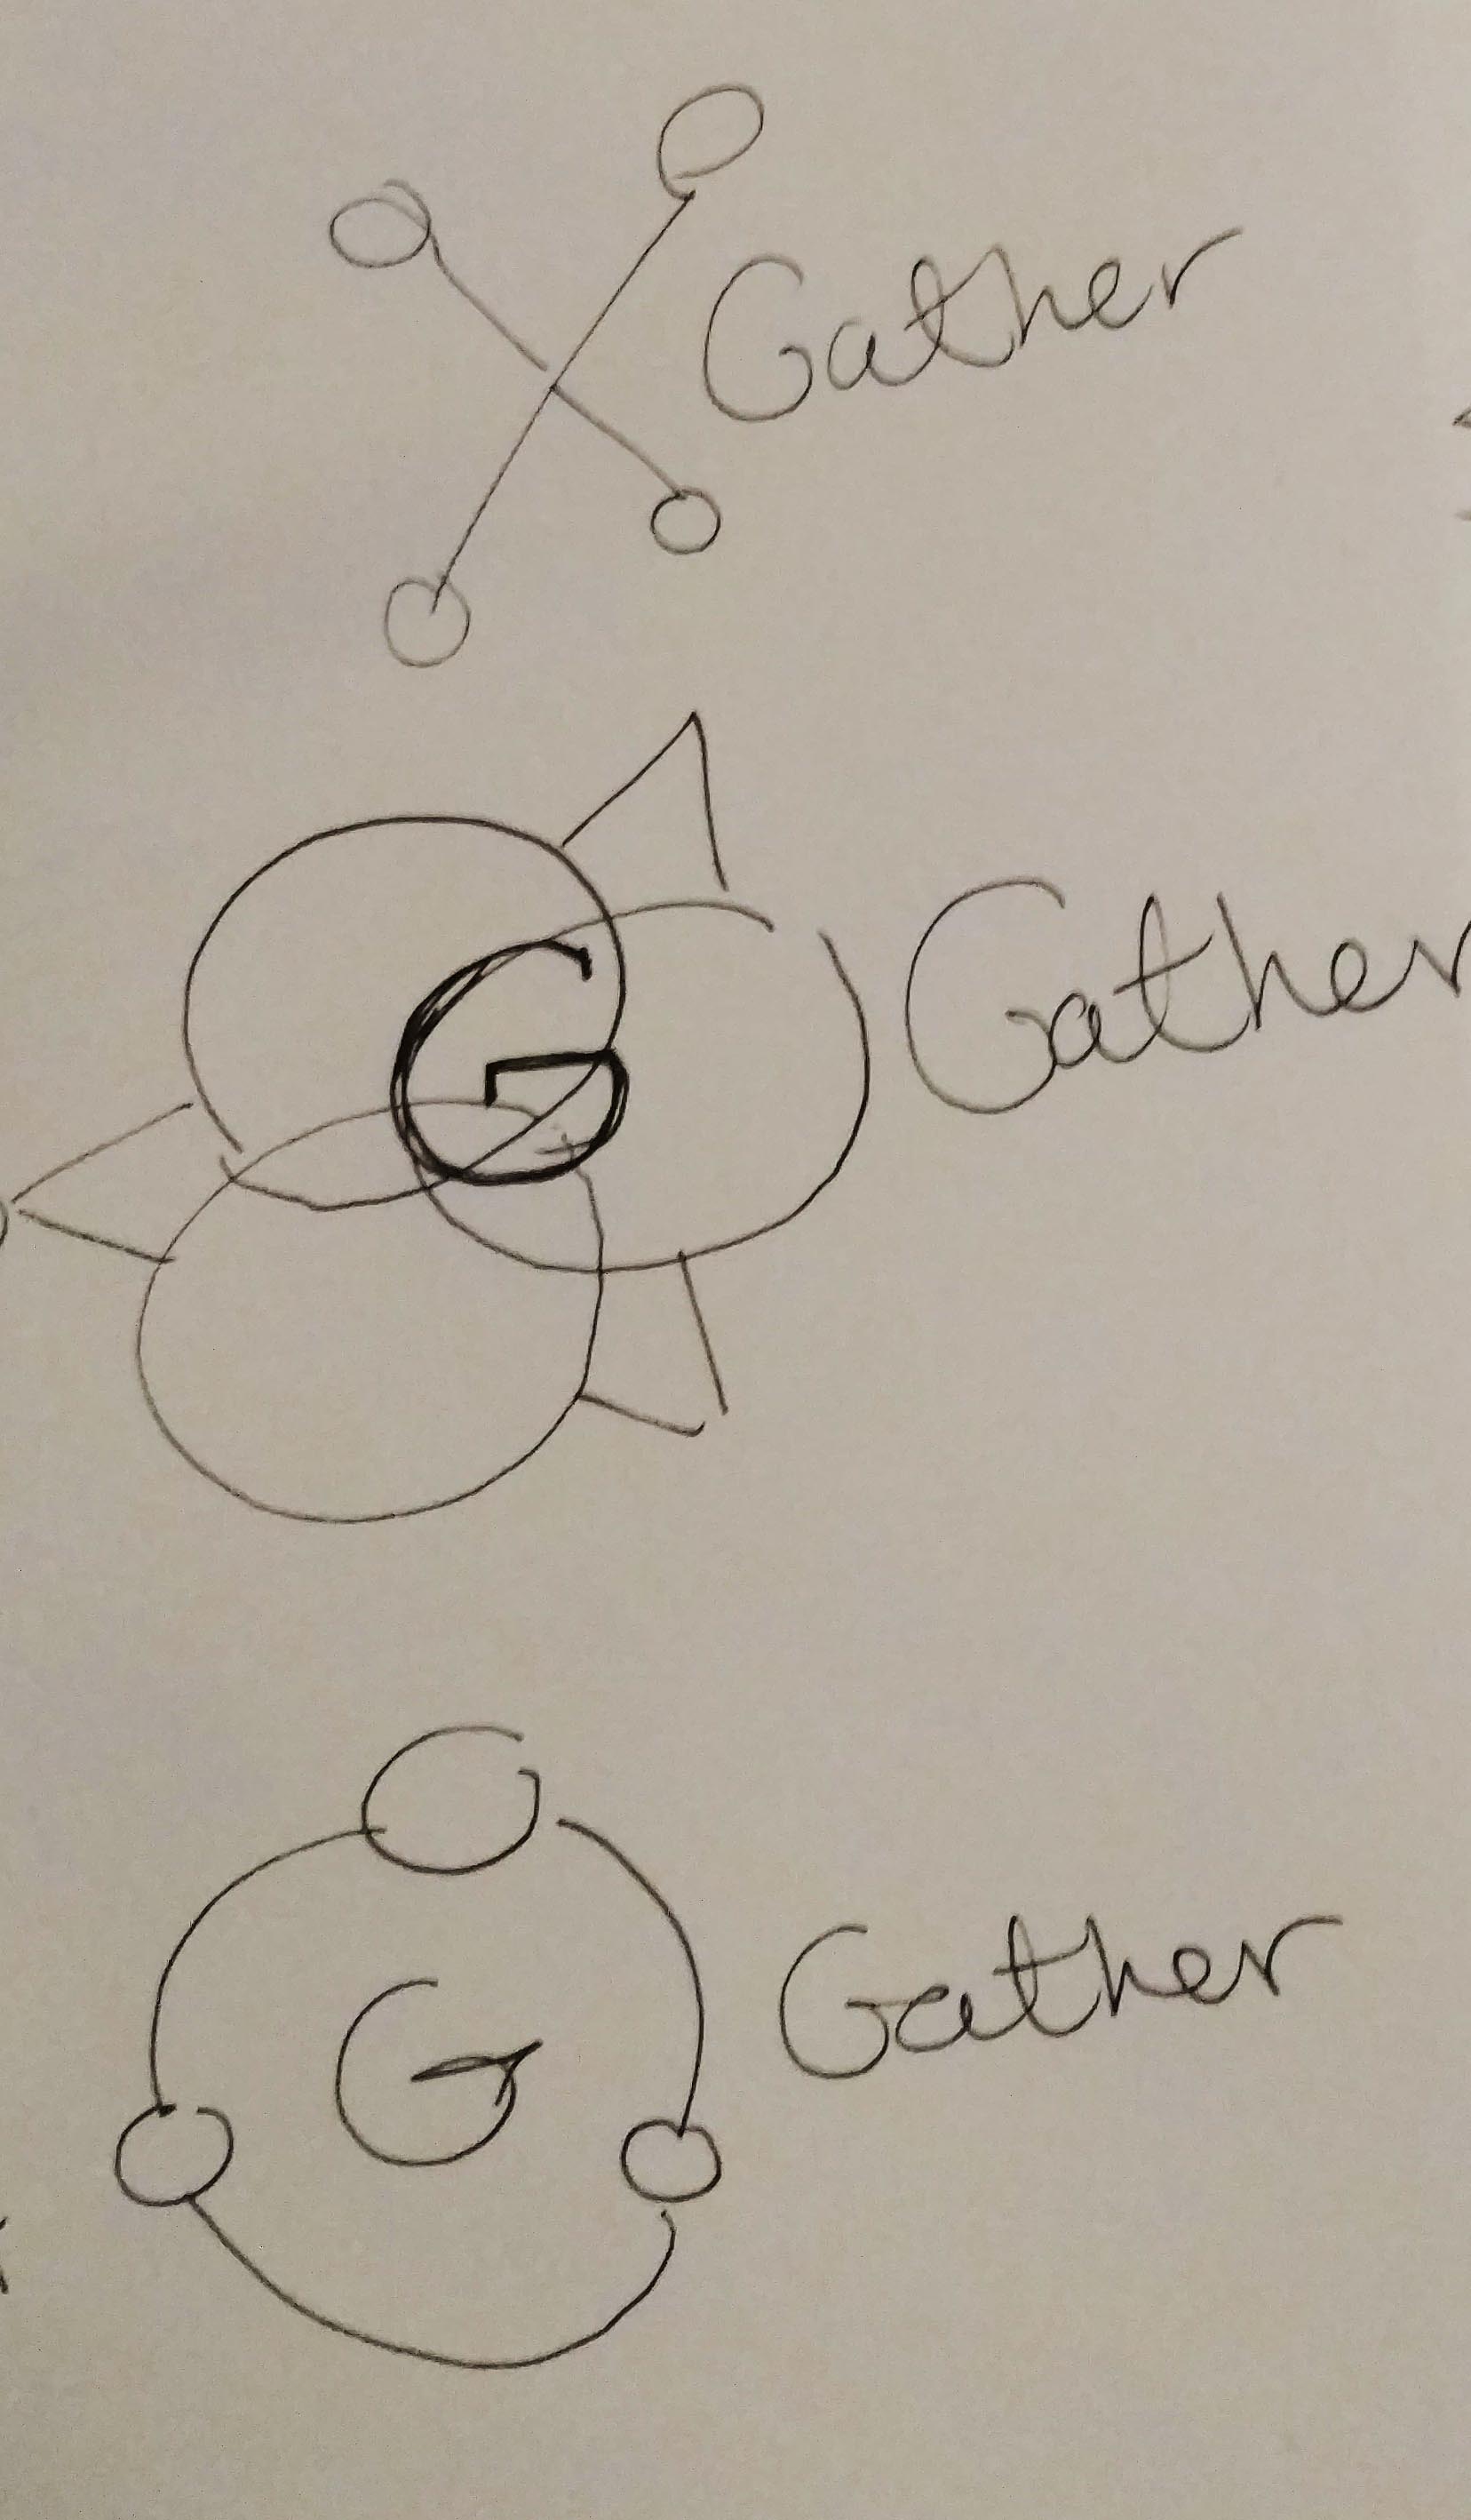 Gather
G
Gather
G
Gather